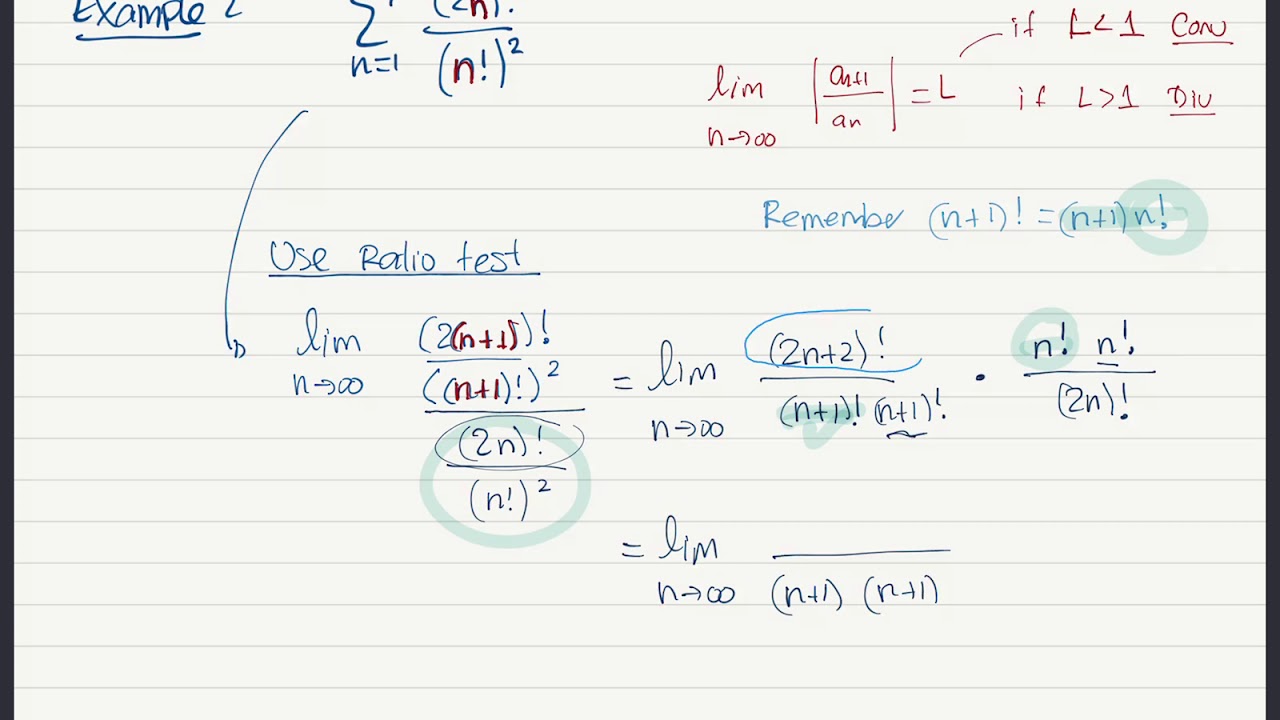 Example 2 ∑ n=1 (2n)! / (n!)²
if L<1 Conv
lim n→∞ |an+1 / an| = L if L>1 Div
Remember (n+1)! = (n+1) n!
Use Ratio test
lim n→∞ (2(n+1))! / ((n+1)!)² / (2n)! / (n!)² = lim n→∞ (2n+2)! / (n+1)! (n+1)! · n! n! / (2n)!
= lim n→∞ / (n+1) (n+1)